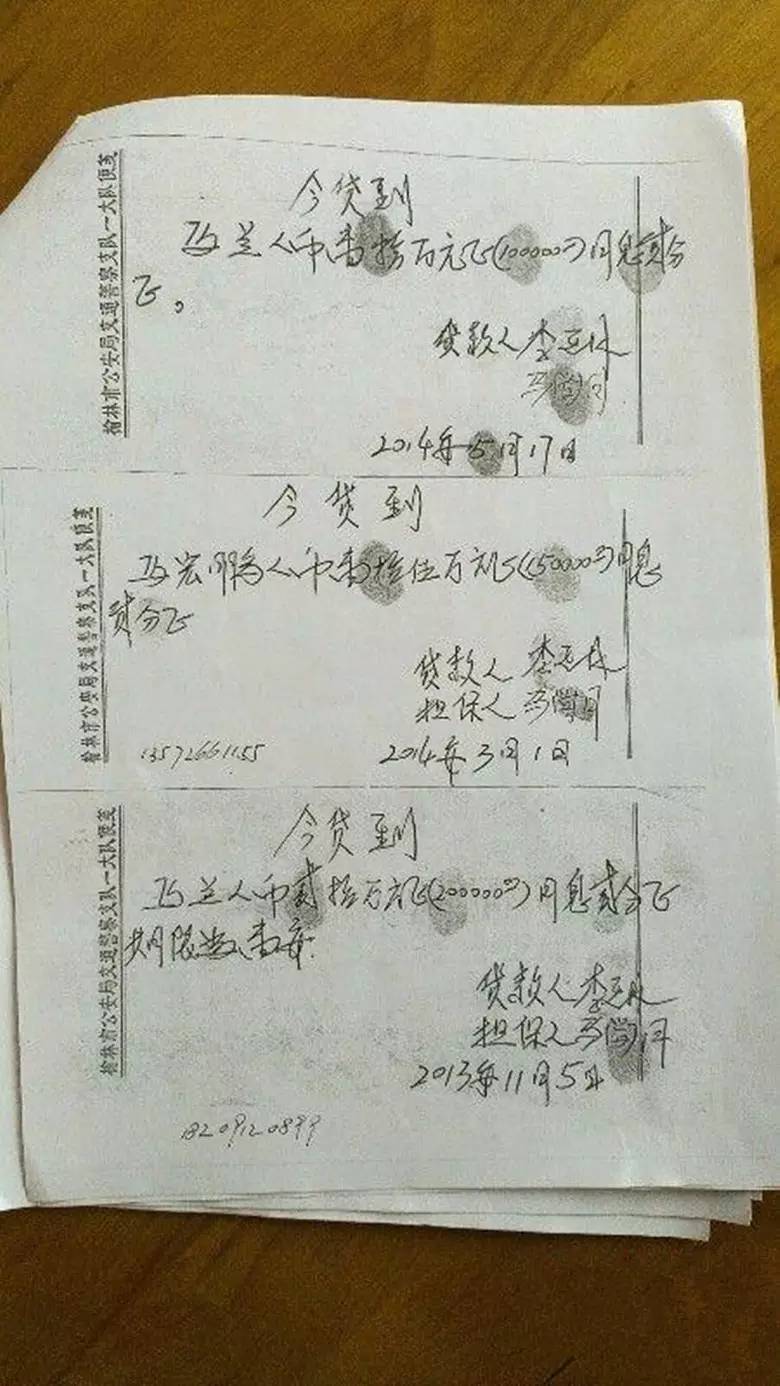 榆林市公安局交通警察支队一大队便笺
今贷到
兰人币壹拾万元正(100000元)月息贰分
正。
贷款人 李
2014年5月17日
榆林市公安局交通警察支队一大队便笺
今贷到
宏鹏人币壹拾伍万元正(150000元)月息
贰分正
贷款人 李
担保人
13572661155 2014年3月1日
榆林市公安局交通警察支队一大队便笺
今贷到
兰人币贰拾万元正(200000元)月息贰分正
贷款人 李
担保人
2013年11月5日
18209120899